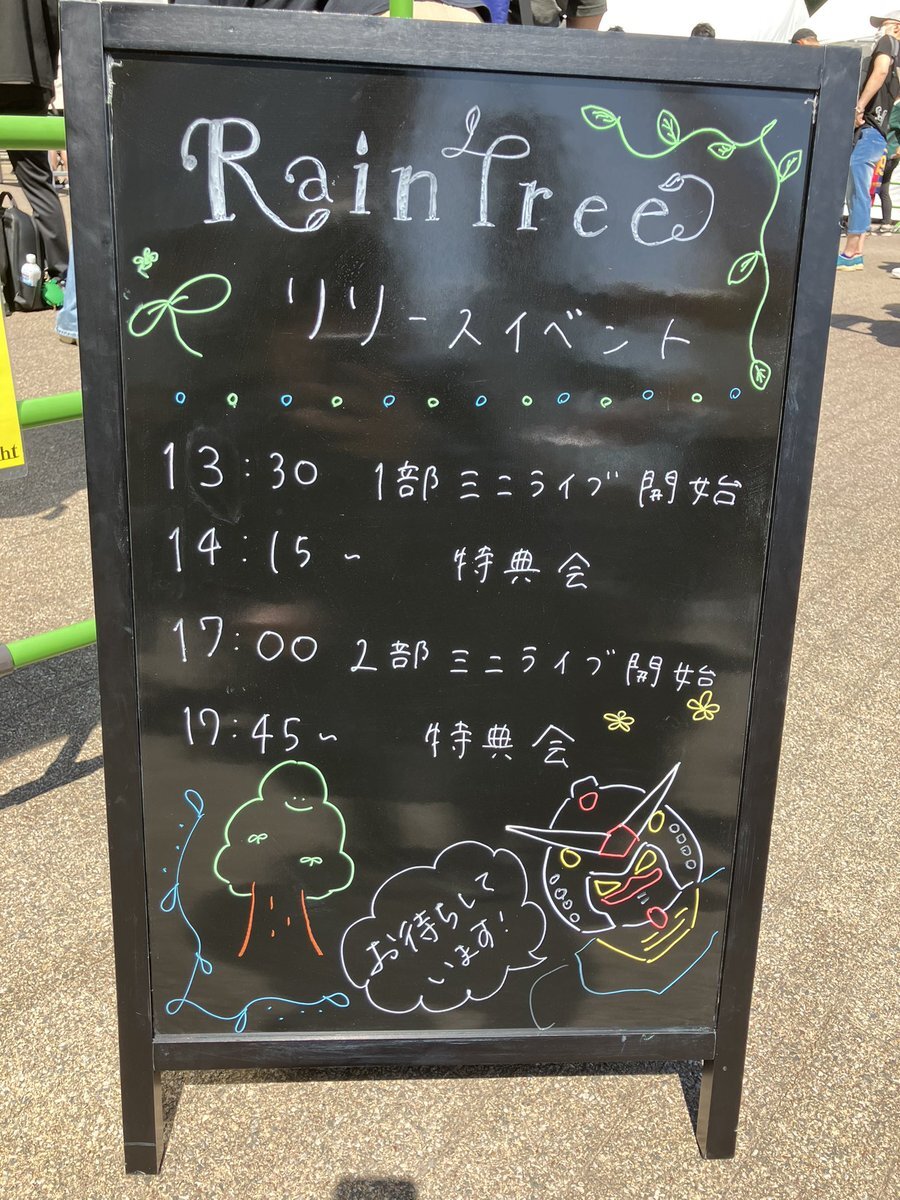 Rain Tree
リリースイベント
13:30 1部ミニライブ開始
14:15~ 特典会
17:00 2部ミニライブ開始
17:45~ 特典会
お待ちして
います!
ht